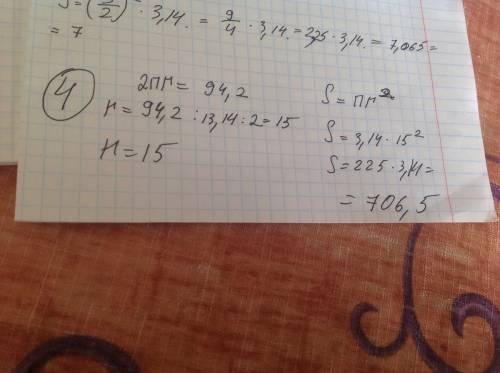 S = (3/2)² · 3,14. = 9/4 · 3,14. = 2,25 · 3,14. = 7,065 =
= 7
4
2πr = 94,2
r = 94,2 : 13,14 : 2 = 15
r = 15
S = πr²
S = 3,14 · 15²
S = 225 · 3,14 =
= 706,5